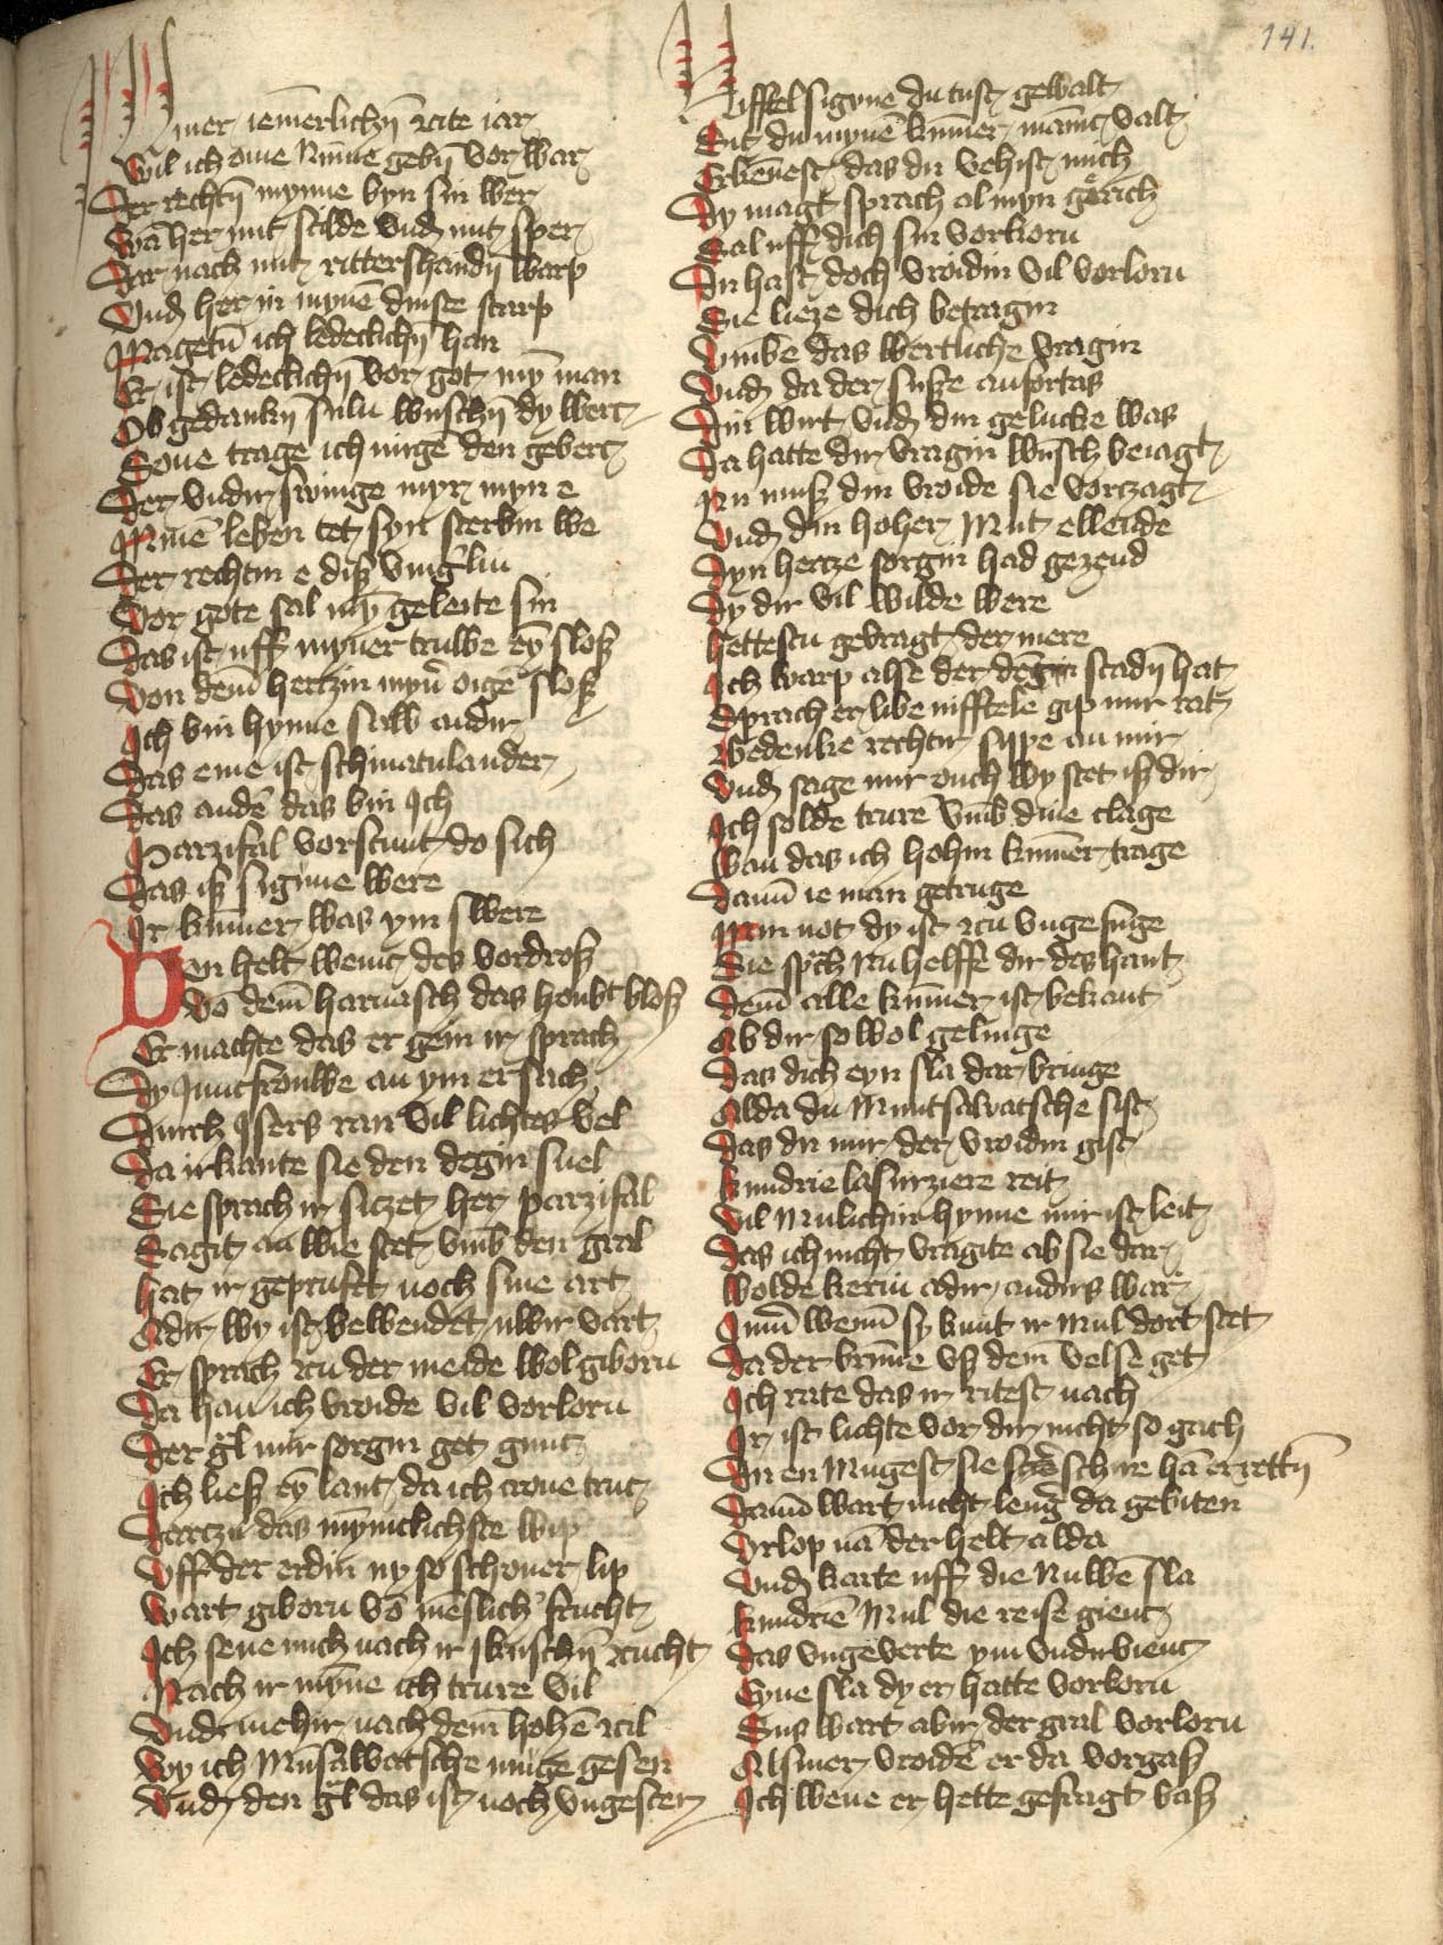 141.
Miner iemerlichen zcite iar
Wil ich ome Minne gebin vor war
Der rechtin mynne byn sin wer
Wā her mit schilde vnd mit sper
Dar nach mit rittershandin warp
Vnd her in mynē dinste starp
Magetū ich ledeclichin han
Er ist ledeclichin vor got mȳ man
Ob gedankin sulū wuschin dy werc
Sone trage ich nirgē den geberc
Der vndir swinge myr myn e
Minē leben tet syn sterbin we
Der rechtin e diß vingerlin
Vor gote sal mȳ geleite sin
Das ist uff myner truwe eȳ sloß
Von dem hertzin mynr oigē floß
Ich bin hynne salb andir
Das eine ist schinatulander
Das andē das bin Ich
Parzifal vorstunt do sich
Das iß sigune were
Ir kum̄er was ym swere
Den helt wenic des vordroß
Vō dem harnasch das houbt bloß
Er machte das er gein ir sprach
Dy Juncfrouwe an ym ersach
Durch Isers ran vil lichtes vel
Da irkante sie den degin snel
Sie sprach ir siczet her parzifal
Sagit an wie stet vmb den gral
Hat ir gepruftt noch sine art
Adir wy ist bewendet uwir vart
Er sprach zcu der meide wol giborn
Da han ich vroide vil vorlorn
Der gral mir sorgin get gnuc
Ich ließ eȳ lant da ich crone truc
Darczu das mȳniclichste wip
Vff der erdin ny so schoner lip
Wart giborn vō mēslicher frucht
Ich sene mich nach ir kuschin zcucht
Nach ir mȳne ich trure vil
Vnd mehir nach dem hohē zcil
Wy ich Munsalvatsche muge gesen
Vnd den gral das ist noch vngescen
Niffttel sigune du tust gewalt
Sit du mynē kum̄er manicvalt
Erkēnest das du vehist mich
Dy magt sprach al myn gerich
Sal uff dich sin vorkorn
Du hast doch vroidin vil vorlorn
Sie lieze dich betragin
Vmbe das wertliche vragin
Vnd da der suße anfortas
Din wirt vnd din gelucke was
Da hatte dir vragin wūsch beiagt
Nu muß din vroide sie vorczagt
Vnd din hoher Mut ellende
Dyn hertze sorgin had gezend
Dy dir vil wilde were
Hettestu gevragt der mere
Ich warp alse der degin schadin hat
Sprach er libe niffttele gip mir rat
Bedenke rechtir sippe an mir
Vnd sage mir ouch wy stet iß dir
Ich solde trurē vmb dine clage
Wan das ich hohin kum̄er trage
Dann ie man getruge
Min not dy ist zcu vngefuge
Sie spch Nu helffe dir des hant
Dem alle kum̄er ist bekant
Ab dir so wol gelinge
Das dich eyn sla dar bringe
Alda du Muntsalvatsche sist
Das du mir der vroidin gist
Kundrie lasurziere reit
Vil Mulichin hynne mir ist leit
Das ich nicht vragite ab sie dar
Wolde kerin adir andirs war
Imm̄ wenn̄ sy kumt ir Mul dort stet
Da der brun̄e vß dem velse get
Ich rate das ir ritest nach
Ir ist lichte vor dir nicht so gach
Du en Mugest sie schire hā erretten
Dann̄ wart nicht lenger da gebiten
Vrlop nā der helt alda
Vnd karte uff die Nuwē sla
Kundriē Mul die reise gienc
Das vngeverte ym vndirvienc
Eyne sla dy er hatte vorkorn
Sus wart abir der gral vorlorn
Alsiner vroidē er da vorgaß
Ich wene er hette gefragt baß